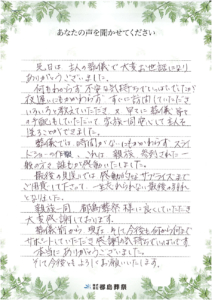 あなたの声を聞かせてください
先日は 主人の葬儀で大変お世話になり
ありがとうございました。
何もわからず不安な気持ちでいっぱいでしたが
夜遅いにもかかわらず すぐに訪問していただき
いろいろ教えていただき 又 早々に葬儀
の手配もしていただいて 家族一同安心して主人を
送ることができました。
葬儀では 時間がないにもかかわらず スライ
ドショーの手配 、これは 親族 参列された一
般の方も 誰もが感動いたしました。
最後の見送りでは 感動的なサプライズまで
ご用意して下さって 一生忘れられない最後の別れ
となりました。
親族一同 都島葬祭様に良くしていただき
大変感謝しております。
葬儀前から 現在 そして今後も何から何まで
サポートしていただき感謝の気持でいっぱいです
本当に ありがとうございました。
そして今後もよろしくお願いいたします。
株式会社 都島葬祭